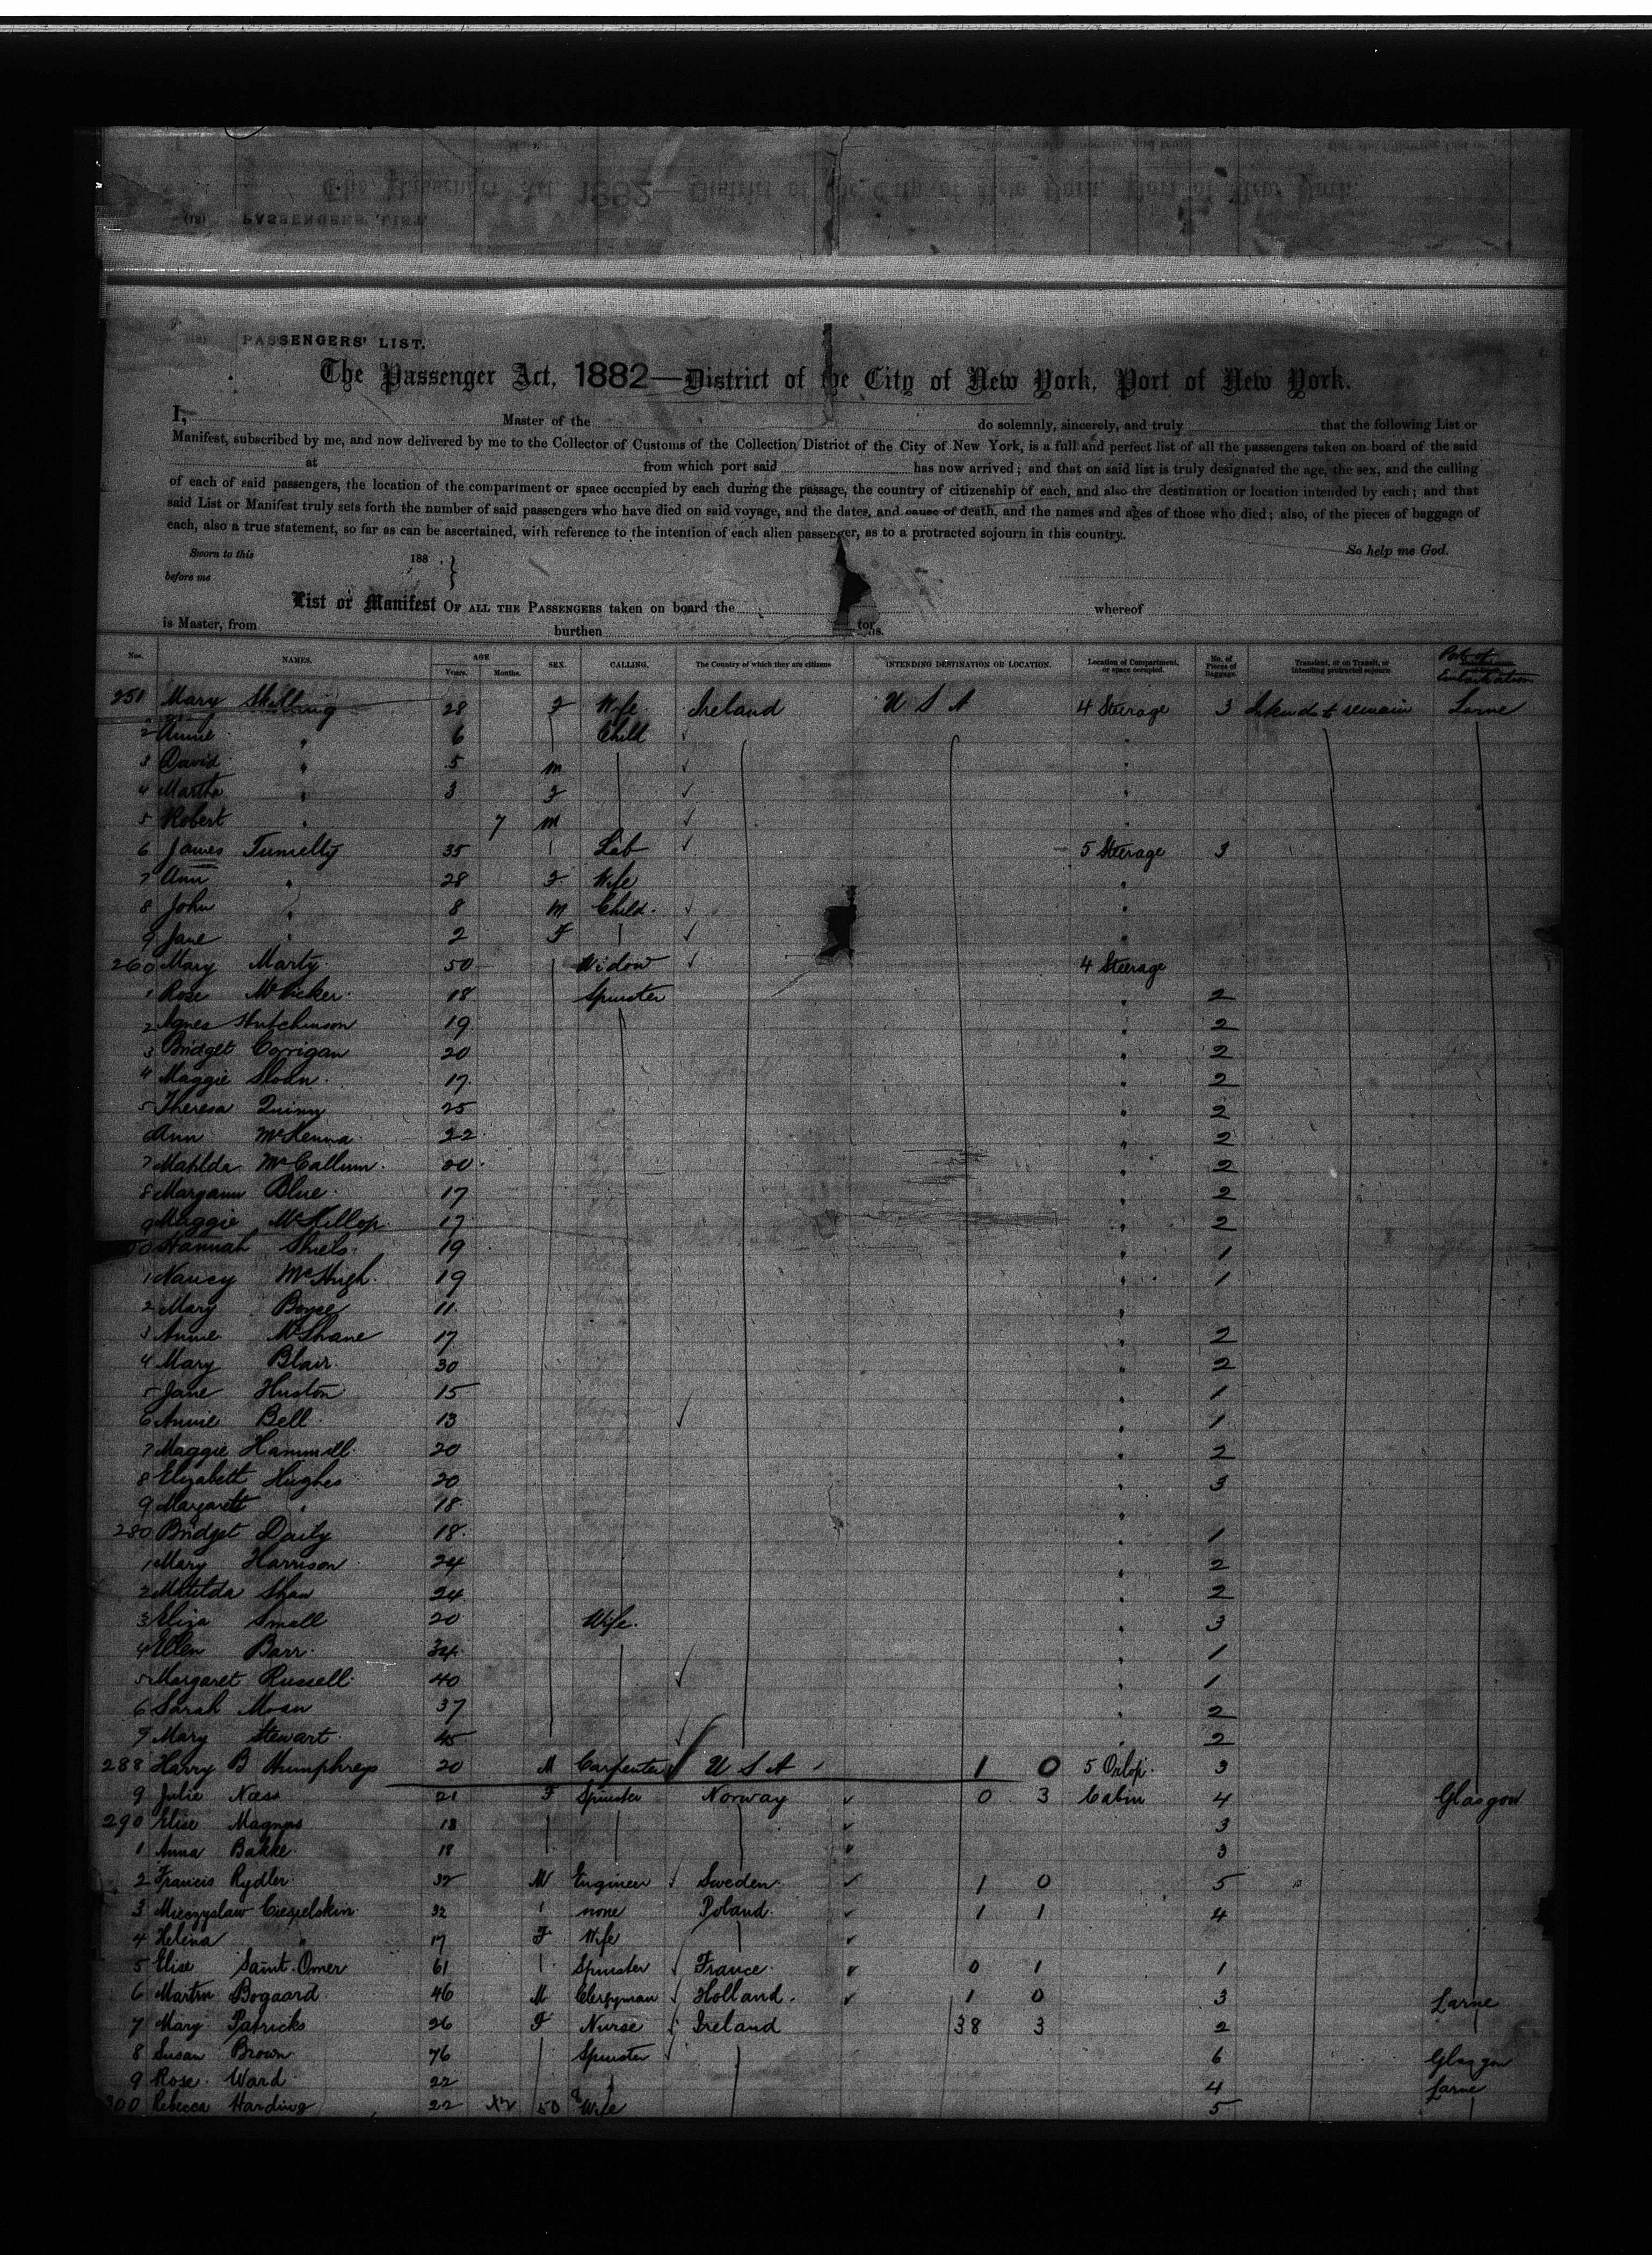 PASSENGERS' LIST.
The Passenger Act, 1882—District of the City of New York, Port of New York.
I, Master of the do solemnly, sincerely, and truly that the following List or
Manifest, subscribed by me, and now delivered by me to the Collector of Customs of the Collection District of the City of New York, is a full and perfect list of all the passengers taken on board of the said
at from which port said has now arrived; and that on said list is truly designated the age, the sex, and the calling
of each of said passengers, the location of the compartment or space occupied by each during the passage, the country of citizenship of each, and also the destination or location intended by each; and that
said List or Manifest truly sets forth the number of said passengers who have died on said voyage, and the dates, and cause of death, and the names and ages of those who died; also, of the pieces of baggage of
each, also a true statement, so far as can be ascertained, with reference to the intention of each alien passenger, as to a protracted sojourn in this country.
Sworn to this 188 . So help me God.
before me
List or Manifest OF ALL THE PASSENGERS taken on board the whereof
is Master, from burthen tons.
Nos. NAMES. AGE Years. Months. SEX. CALLING. The Country of which they are citizens INTENDING DESTINATION OR LOCATION. Location of Compartment, or space occupied. No. of Pieces of Baggage. Transient, or on Transit, or intending protracted sojourn Port of Embarkation
251 Mary Skelling 28 F Wife Ireland U S A 4 Steerage 3 Intends to remain Larne
2 Annie " 6 Child
3 David " 5 M
4 Martha " 3 F
5 Robert " 7 M
6 James Tumelty 35 Lab 5 Steerage 3
7 Ann " 28 F Wife "
8 John " 8 M Child "
9 Jane " 2 F "
260 Mary Marty 50 Widow 4 Steerage
1 Rose McVicker 18 Spinster " 2
2 Agnes Hutchinson 19 " 2
3 Bridget Corrigan 20 " 2
4 Maggie Sloan 17 " 2
5 Theresa Quinn 25 " 2
6 Ann McKenna 22 " 2
7 Matilda McCallum 20 " 2
8 Margann Blue 17 " 2
9 Maggie McKillop 17 " 2
Hannah Shiels 19 " 1
1 Nancy McHugh 19 " 1
2 Mary Boyce 11 "
3 Annie McShane 17 " 2
4 Mary Blair 30 " 2
5 Jane Huston 15 " 1
6 Annie Bell 13 " 1
7 Maggie Hammill 20 " 2
8 Elizabeth Hughes 20 " 3
9 Margarett " 18 "
280 Bridget Daily 18 " 1
1 Mary Harrison 24 " 2
2 Matilda Shaw 24 " 2
3 Eliza Small 20 Wife " 3
4 Ellen Barr 34 " 1
5 Margaret Russell 40 " 1
6 Sarah Moan 37 " 2
7 Mary Stewart 45 " 2
288 Harry B Humphreys 20 M Carpenter U S A 1 0 5 Orlop 3
9 Julie Næss 21 F Spinster Norway 0 3 Cabin 4 Glasgow
290 Elise Magnus 18 3
1 Anna Bakke 18 3
2 Francis Rydler 32 M Engineer Sweden 1 0 5
3 Mieczyslaw 32 none Poland 1 1 4
4 Helena " 17 F Wife
5 Elise Saint-Omer 61 Spinster France 0 1 1
6 Martin Bogaard 46 M Clergyman Holland 1 0 3 Larne
7 Mary Patricks 26 F Nurse Ireland 38 3 2
8 Susan Brown 76 Spinster 6 Glasgow
9 Rose Ward 22 4 Larne
300 Rebecca Harding 22 50 Wife 5